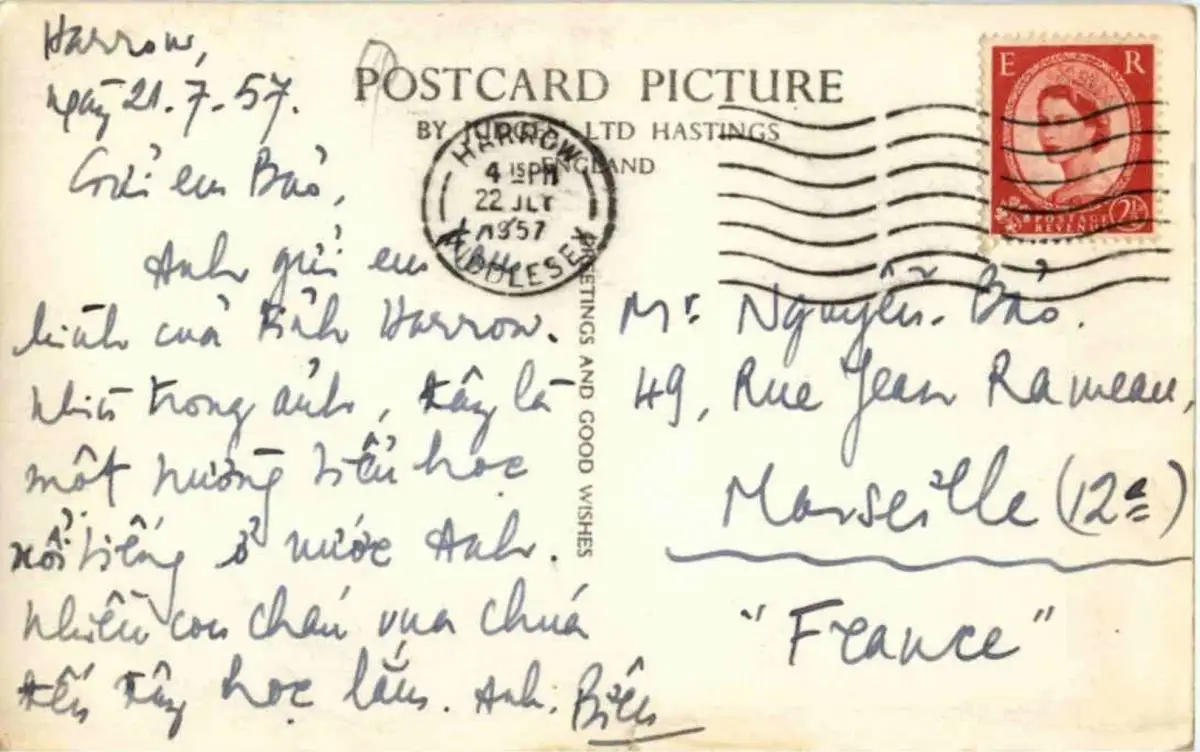 Harrow,
ngày 21.7.57.
POSTCARD PICTURE
BY JUDGES LTD HASTINGS
ENGLAND
HARROW
4 15 PM
22 JLY
1957
MIDDLESEX
E R
POSTAGE
REVENUE
2½
GREETINGS AND GOOD WISHES
Gửi em Bảo,
Anh gửi em
hình của tỉnh Harrow.
Nhìn trong ảnh, đây là
một trường tiểu học
nổi tiếng ở nước Anh.
Nhiều con cháu vua chúa
đến đây học lắm. Anh: Biên
Mr. Nguyễn-Bảo.
49, Rue Jean Rameau,
Marseille (12e)
"France"